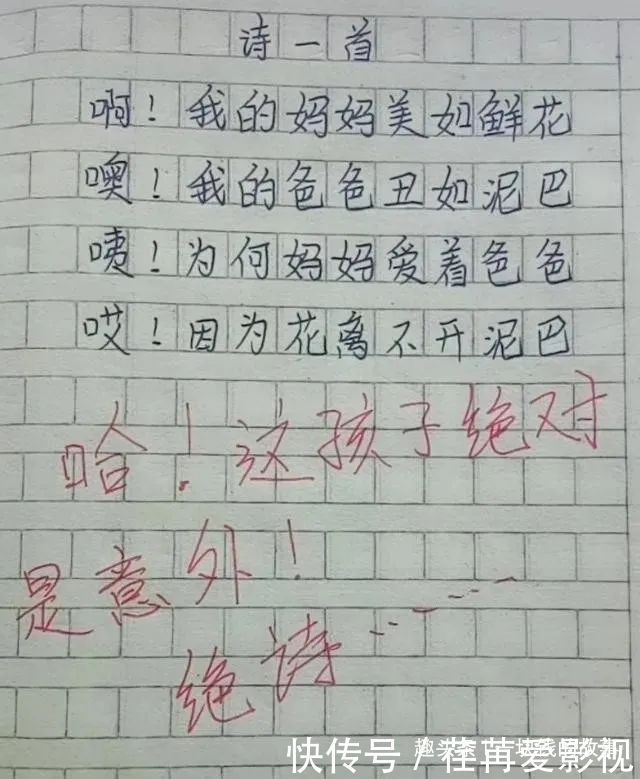 诗一首
啊！我的妈妈美如鲜花
噢！我的爸爸丑如泥巴
咦！为何妈妈爱着爸爸
哎！因为花离不开泥巴
哈！这孩子绝对
是意外！
绝诗……
趣头条
快传号 / 苒爱影视